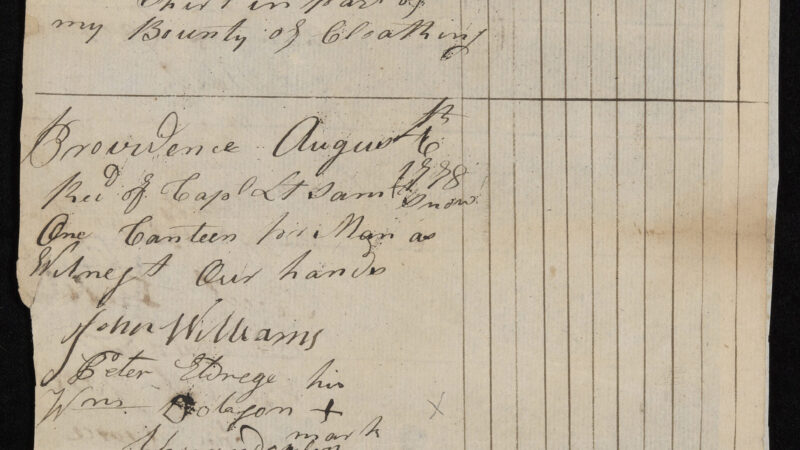 Shirt in Part of
my Bounty of Cloathing
Providence August
1778
Recd of Capt Lt Saml Snow
One Canteen for Man as
Witness Our hands
John Williams
Peter Eldrege his
Wm. Dobson +
mark